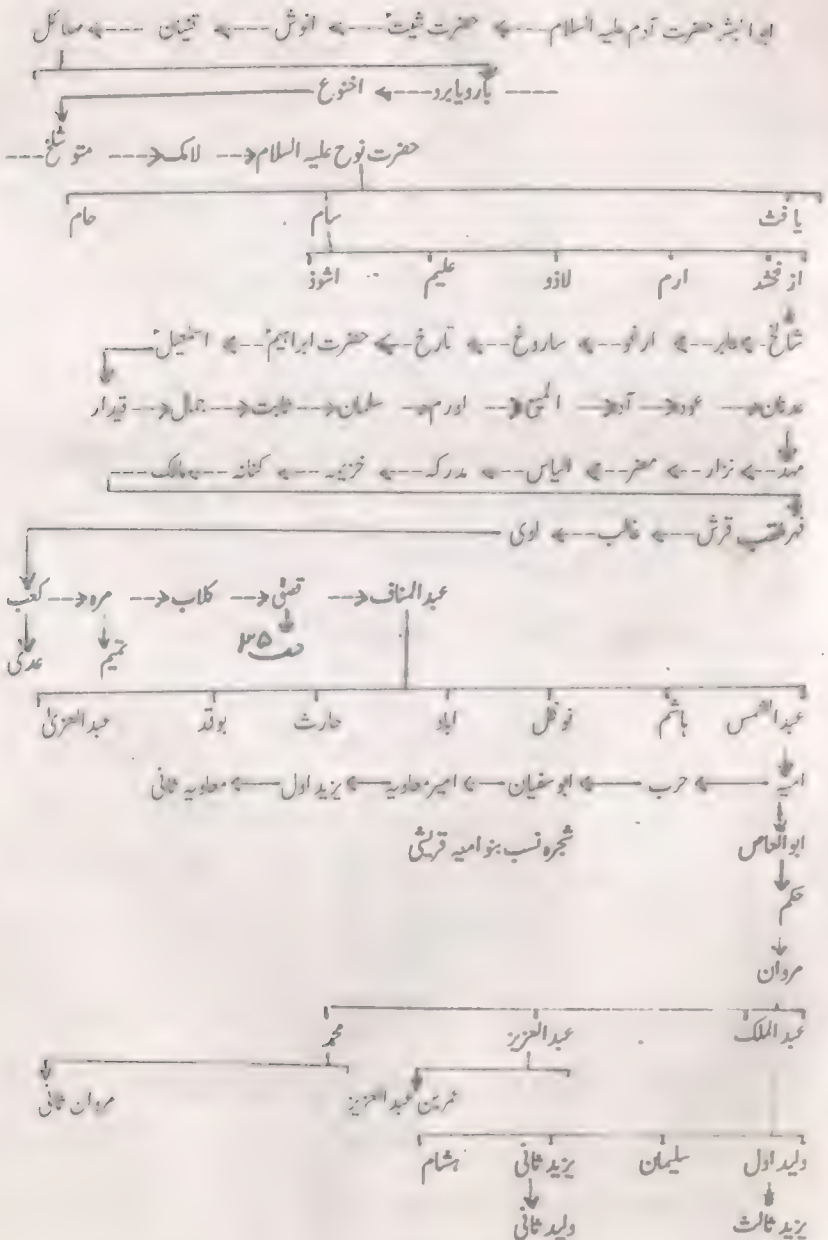 ابو البشر حضرت آدم علیہ السلام ---> حضرت شیث ---> انوش ---> قینان ---> مہائل
یارویابرد ---> اخنوع
حضرت نوح علیہ السلام ---> لامک ---> متو شلخ
یافث سام حام
ارم لاذو علیم اشوذ
شالخ ---> عابر ---> ارغو ---> ساروغ ---> تارخ ---> حضرت ابراہیم ---> اسمٰعیل
عدنان ---> عود ---> آد ---> ---> اورم ---> سلمان ---> ثابت ---> جمال ---> قیدار
معد ---> نزار ---> مضر ---> الیاس ---> مدرکہ ---> خزیمہ ---> کنانہ ---> مالک
فہر لقب قرش ---> غالب ---> لوی
عبدالمناف ---> قصیٰ ---> کلاب ---> مرہ ---> کعب
تمیم عدی
عبدالشمس ہاشم نوفل اباد حارث بوقد عبدالعزیٰ
امیہ ---> حرب ---> ابوسفیان ---> امیر معاویہ ---> یزید اول ---> معاویہ ثانی
ابوالعاص شجرہ نسب بنو امیہ قریشی
حکم
مروان
عبدالملک عبدالعزیز محمد
عمر بن عبدالعزیز مروان ثانی
ولید اول سلیمان یزید ثانی ہشام
یزید ثالث ولید ثانی